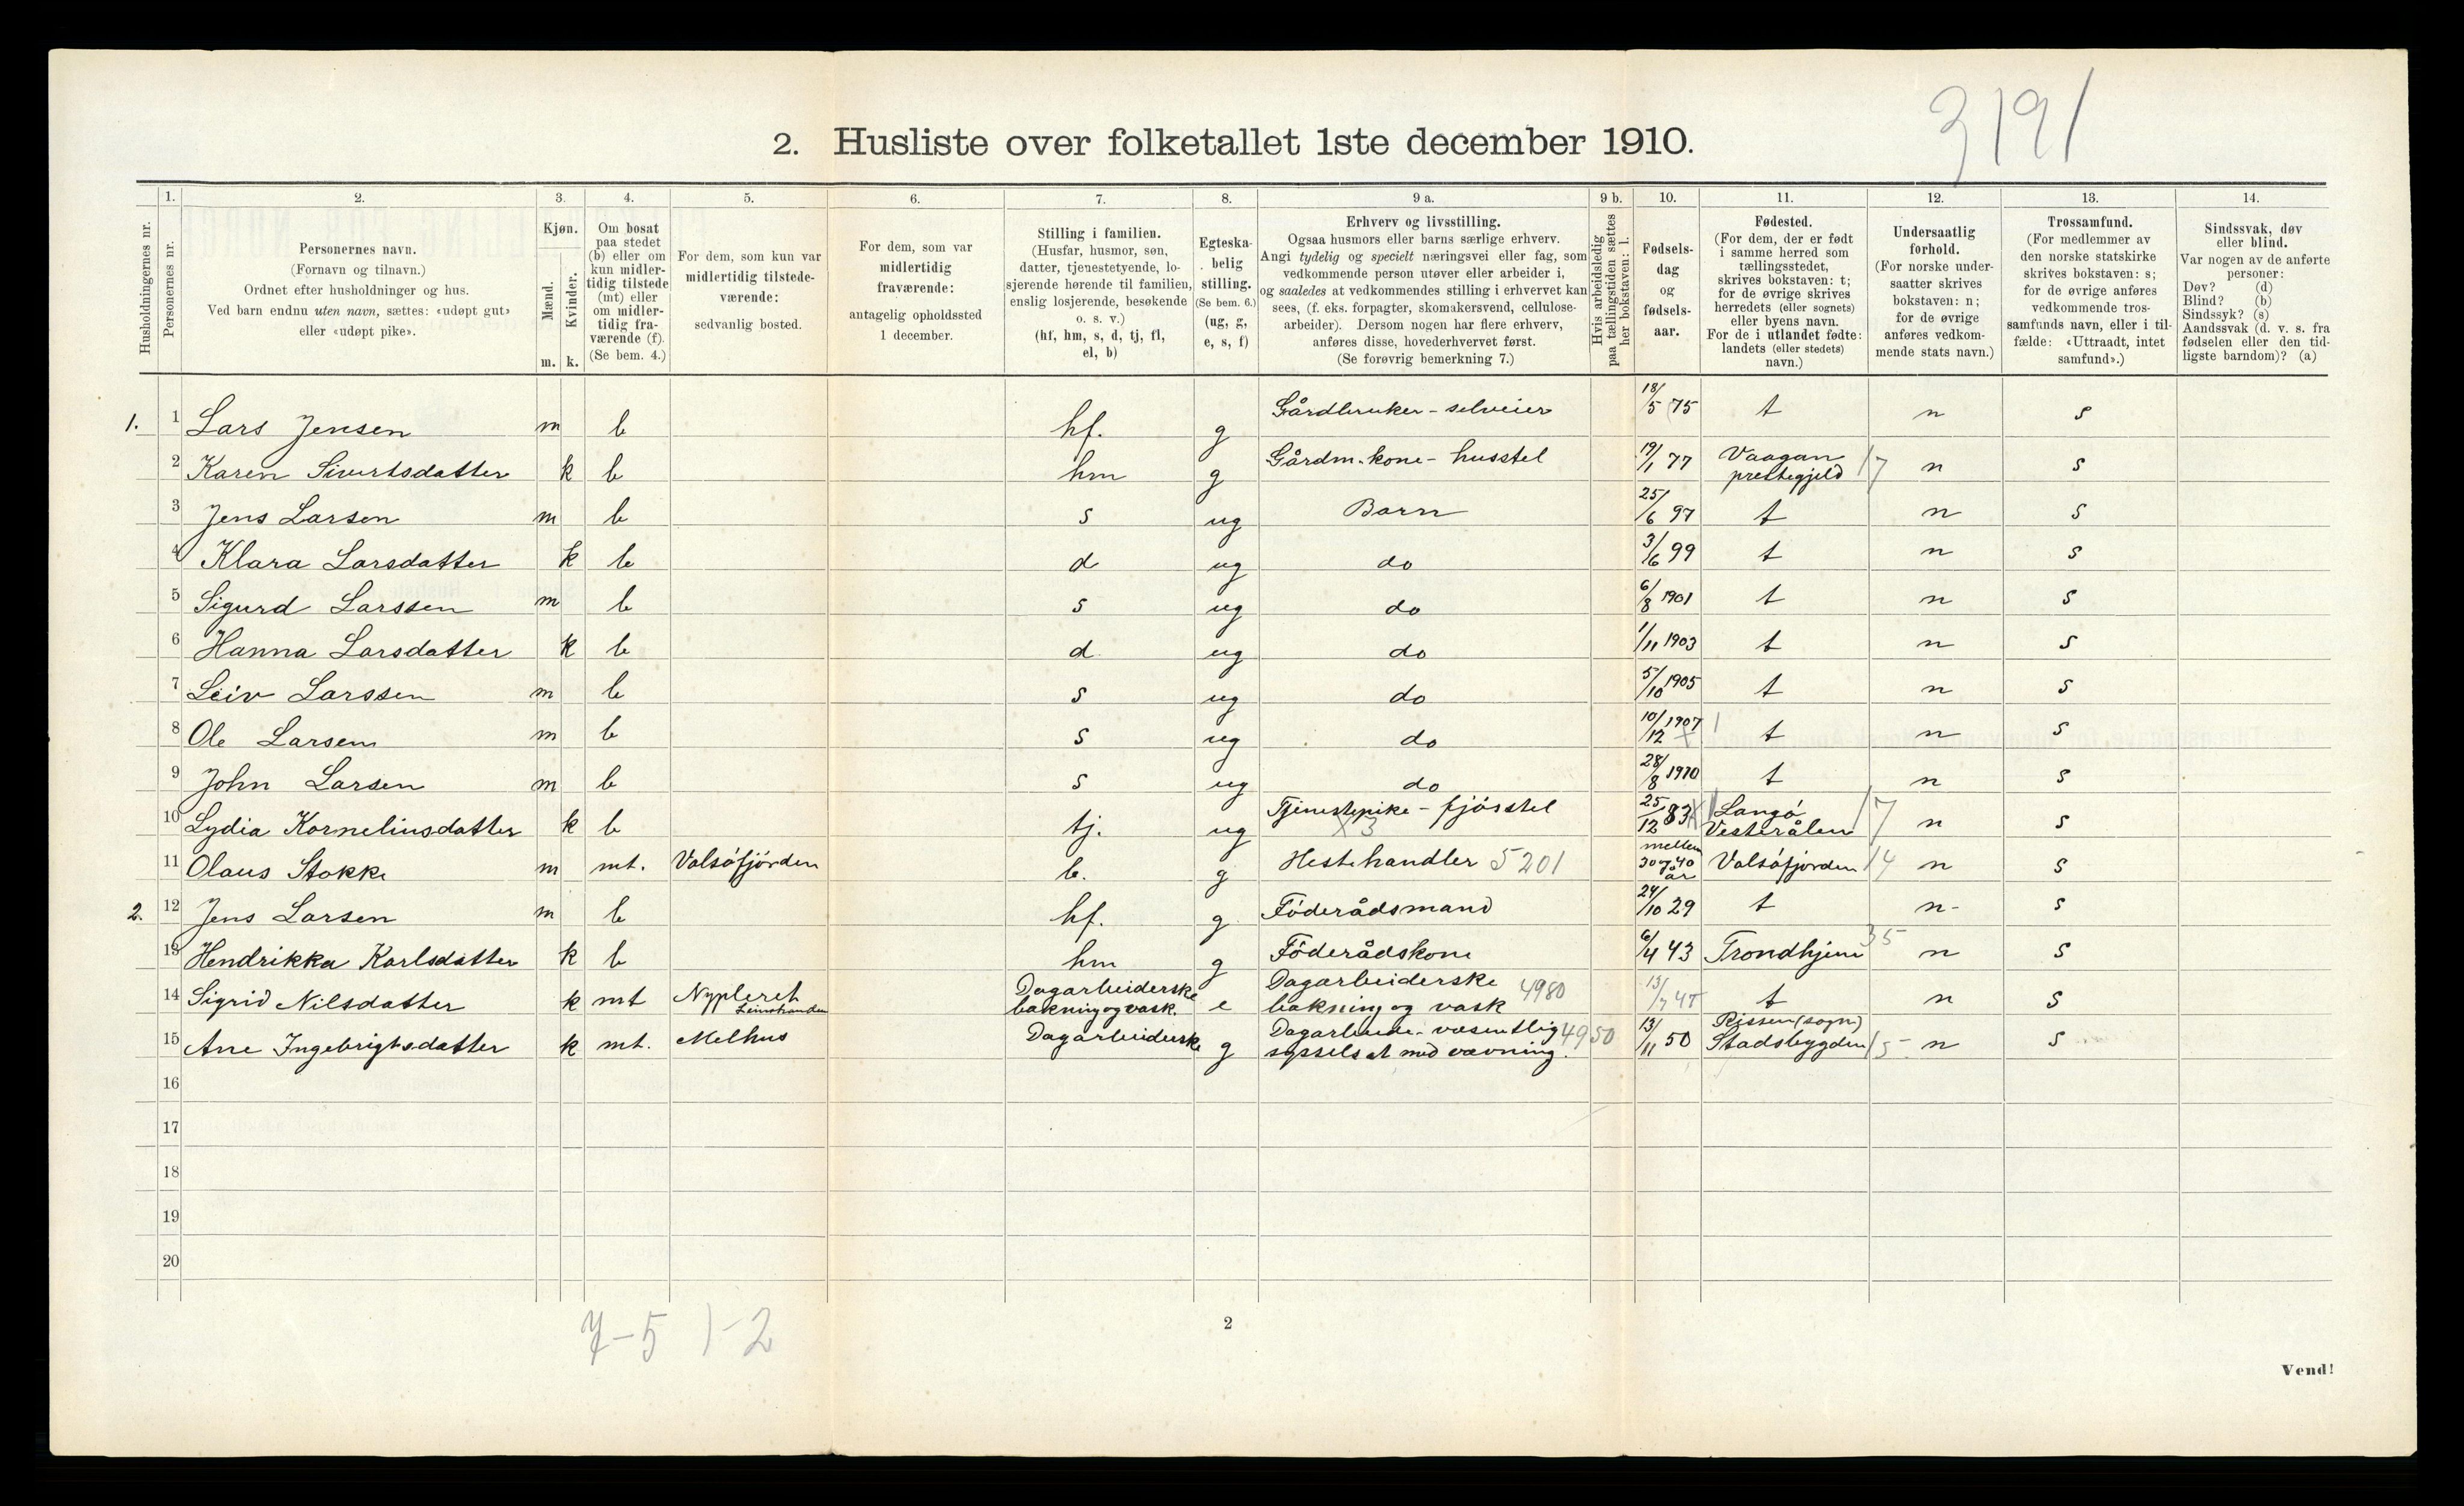 3191
2. Husliste over folketallet 1ste december 1910.
Husholdningernes nr.
1.
Personernes nr.
2.
Personernes navn.
(Fornavn og tilnavn.)
Ordnet efter husholdninger og hus.
Ved barn endnu uten navn, sættes: «udøpt gut»
eller «udøpt pike».
3.
Kjøn.
Mænd.
Kvinder.
m. k.
4.
Om bosat
paa stedet
(b) eller om
kun midler-
tidig tilstede
(mt) eller
om midler-
tidig fra-
værende (f).
(Se bem. 4.)
5.
For dem, som kun var
midlertidig tilstede-
værende:
sedvanlig bosted.
6.
For dem, som var
midlertidig
fraværende:
antagelig opholdssted
1 december.
7.
Stilling i familien.
(Husfar, husmor, søn,
datter, tjenestetyende, lo-
sjerende hørende til familien,
enslig losjerende, besøkende
o. s. v.)
(hf, hm, s, d, tj, fl,
el, b)
8.
Egteska-
belig
stilling.
(Se bem. 6.)
(ug, g,
e, s, f)
9 a.
Erhverv og livsstilling.
Ogsaa husmors eller barns særlige erhverv.
Angi tydelig og specielt næringsvei eller fag, som
vedkommende person utøver eller arbeider i,
og saaledes at vedkommendes stilling i erhvervet kan
sees, (f. eks. forpagter, skomakersvend, cellulose-
arbeider). Dersom nogen har flere erhverv,
anføres disse, hovederhvervet først.
(Se forøvrig bemerkning 7.)
9 b.
Hvis arbeidsledig
paa tællingstiden sættes
her bokstaven: l.
10.
Fødsels-
dag
og
fødsels-
aar.
11.
Fødested.
(For dem, der er født
i samme herred som
tællingsstedet,
skrives bokstaven: t;
for de øvrige skrives
herredets (eller sognets)
eller byens navn.
For de i utlandet fødte:
landets (eller stedets)
navn.)
12.
Undersaatlig
forhold.
(For norske under-
saatter skrives
bokstaven: n;
for de øvrige
anføres vedkom-
mende stats navn.)
13.
Trossamfund.
(For medlemmer av
den norske statskirke
skrives bokstaven: s;
for de øvrige anføres
vedkommende tros-
samfunds navn, eller i til-
fælde: «Uttraadt, intet
samfund».)
14.
Sindssvak, døv
eller blind.
Var nogen av de anførte
personer:
Døv? (d)
Blind? (b)
Sindssyk? (s)
Aandssvak (d. v. s. fra
fødselen eller den tid-
ligste barndom)? (a)
1. 1 Lars Jensen m b hf. g Gårdbruker - selveier 18/5 75 t n s
2 Karen Sivertsdatter k b hm g Gårdm. kone - husstel 19/1 77 Vaagan prestegjeld 17 n s
3 Jens Larsen m b s ug Barn 25/6 97 t n s
4 Klara Larsdatter k b d ug do 3/6 99 t n s
5 Sigurd Larssen m b s ug do 6/8 1901 t n s
6 Hanna Larsdatter k b d ug do 1/11 1903 t n s
7 Leiv Larssen m b s ug do 5/10 1905 t n s
8 Ole Larsen m b s ug do 10/12 1907 t n s
9 John Larsen m b s ug do 28/8 1910 t n s
10 Lydia Kornelinsdatter k b tj. ug Tjenestepike - fjösstel 25/12 83 Langö Vesterålen 17 n s
11 Olaus Stokke m mt. Valsöfjörden b. g Hestehandler 5201 mellem 30 og 40 år Valsöfjorden 14 n s
2. 12 Jens Larsen m b hf. g Föderådsmand 24/10 29 t n s
13 Hendrikka Karlsdatter k b hm g Föderådskone 6/4 43 Trondhjem 35 n s
14 Sigrid Nilsdatter k mt Nypleret Leinstranden Dagarbeiderske bakning og vask. e Dagarbeiderske bakning og vask 4980 13/7 45 t n s
15 Ane Ingebrigtsdatter k mt. Melhus Dagarbeiderske g Dagarbeide. væsentlig sysselsat med vævning. 4950 13/11 50 Rissen (sogn) Stadsbygden 15 n s
16
17
18
19
20
7-5 1-2
2
Vend!